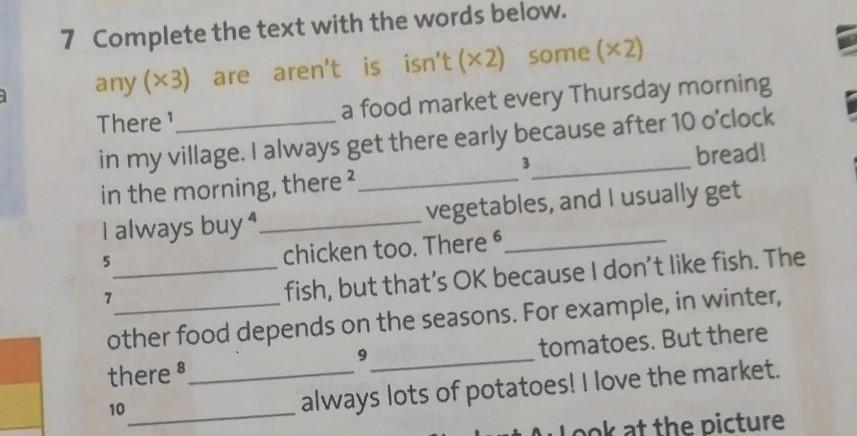 7 Complete the text with the words below.
any (×3) are aren't is isn't (×2) some (×2)
There ¹__________ a food market every Thursday morning
in my village. I always get there early because after 10 o'clock
in the morning, there ²__________ ³__________ bread!
I always buy ⁴__________ vegetables, and I usually get
⁵__________ chicken too. There ⁶__________
⁷__________ fish, but that's OK because I don't like fish. The
other food depends on the seasons. For example, in winter,
there ⁸__________ ⁹__________ tomatoes. But there
¹⁰__________ always lots of potatoes! I love the market.
A: Look at the picture